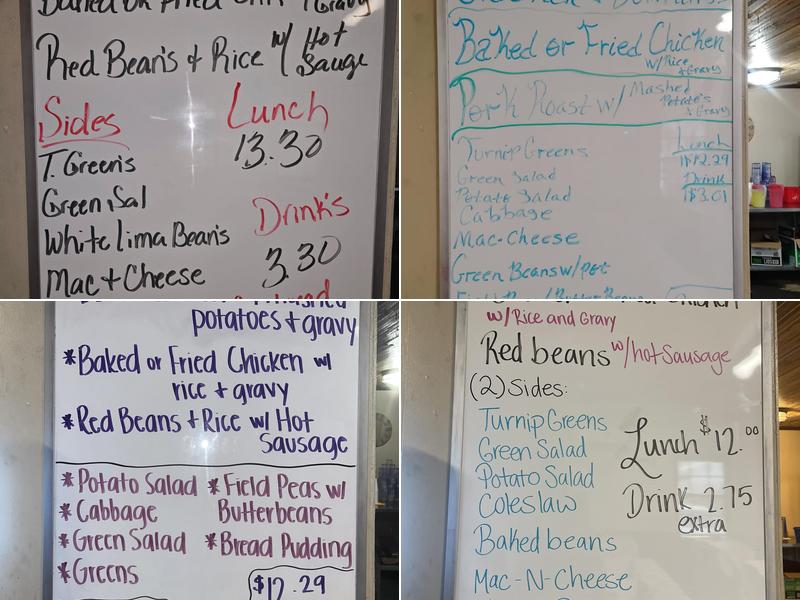 Baked or Fried Chk / Gravy
Red Bean's + Rice w/ Hot Sauge
Sides
Lunch
13.30
T. Green's
Green Sal
White Lima Bean's
Mac + Cheese
Drink's
3.30
Baked or Fried Chicken
w/Rice
+ Gravy
Pork Roast w/ Mashed
Potato's
& Gravy
Turnip Greens
Green Salad
Potato Salad
Cabbage
Mac-Cheese
Green Beans w/pot
Lunch
$12.29
Drink
$3.01
potatoes + gravy
*Baked or Fried Chicken w/
rice + gravy
*Red Beans + Rice w/ Hot
Sausage
*Potato Salad
*Cabbage
*Green Salad
*Greens
*Field Peas w/
Butterbeans
*Bread Pudding
$12.29
w/Rice and Gravy
Red beans w/hot Sausage
(2) Sides:
Turnip Greens
Green Salad
Potato Salad
Coleslaw
Baked beans
Mac-N-Cheese
Lunch $12.00
Drink 2.75
extra